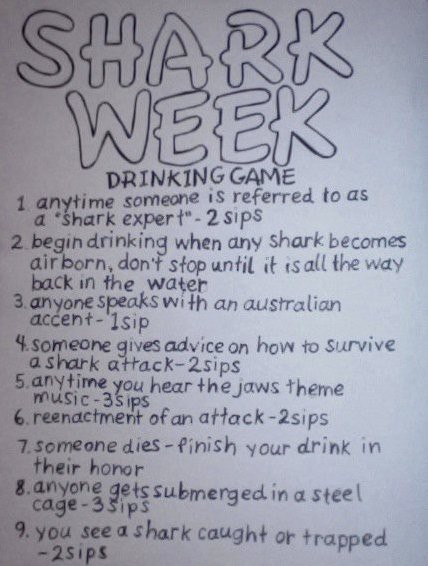 SHARK
WEEK
DRINKING GAME
1 anytime someone is referred to as
a "shark expert" - 2 sips
2. begin drinking when any shark becomes
air born, don't stop until it is all the way
back in the water
3. anyone speaks with an australian
accent - 1 sip
4. someone gives advice on how to survive
a shark attack - 2 sips
5. anytime you hear the jaws theme
music - 3 sips
6. reenactment of an attack - 2 sips
7. someone dies - finish your drink in
their honor
8. anyone gets submerged in a steel
cage - 3 sips
9. you see a shark caught or trapped
- 2 sips